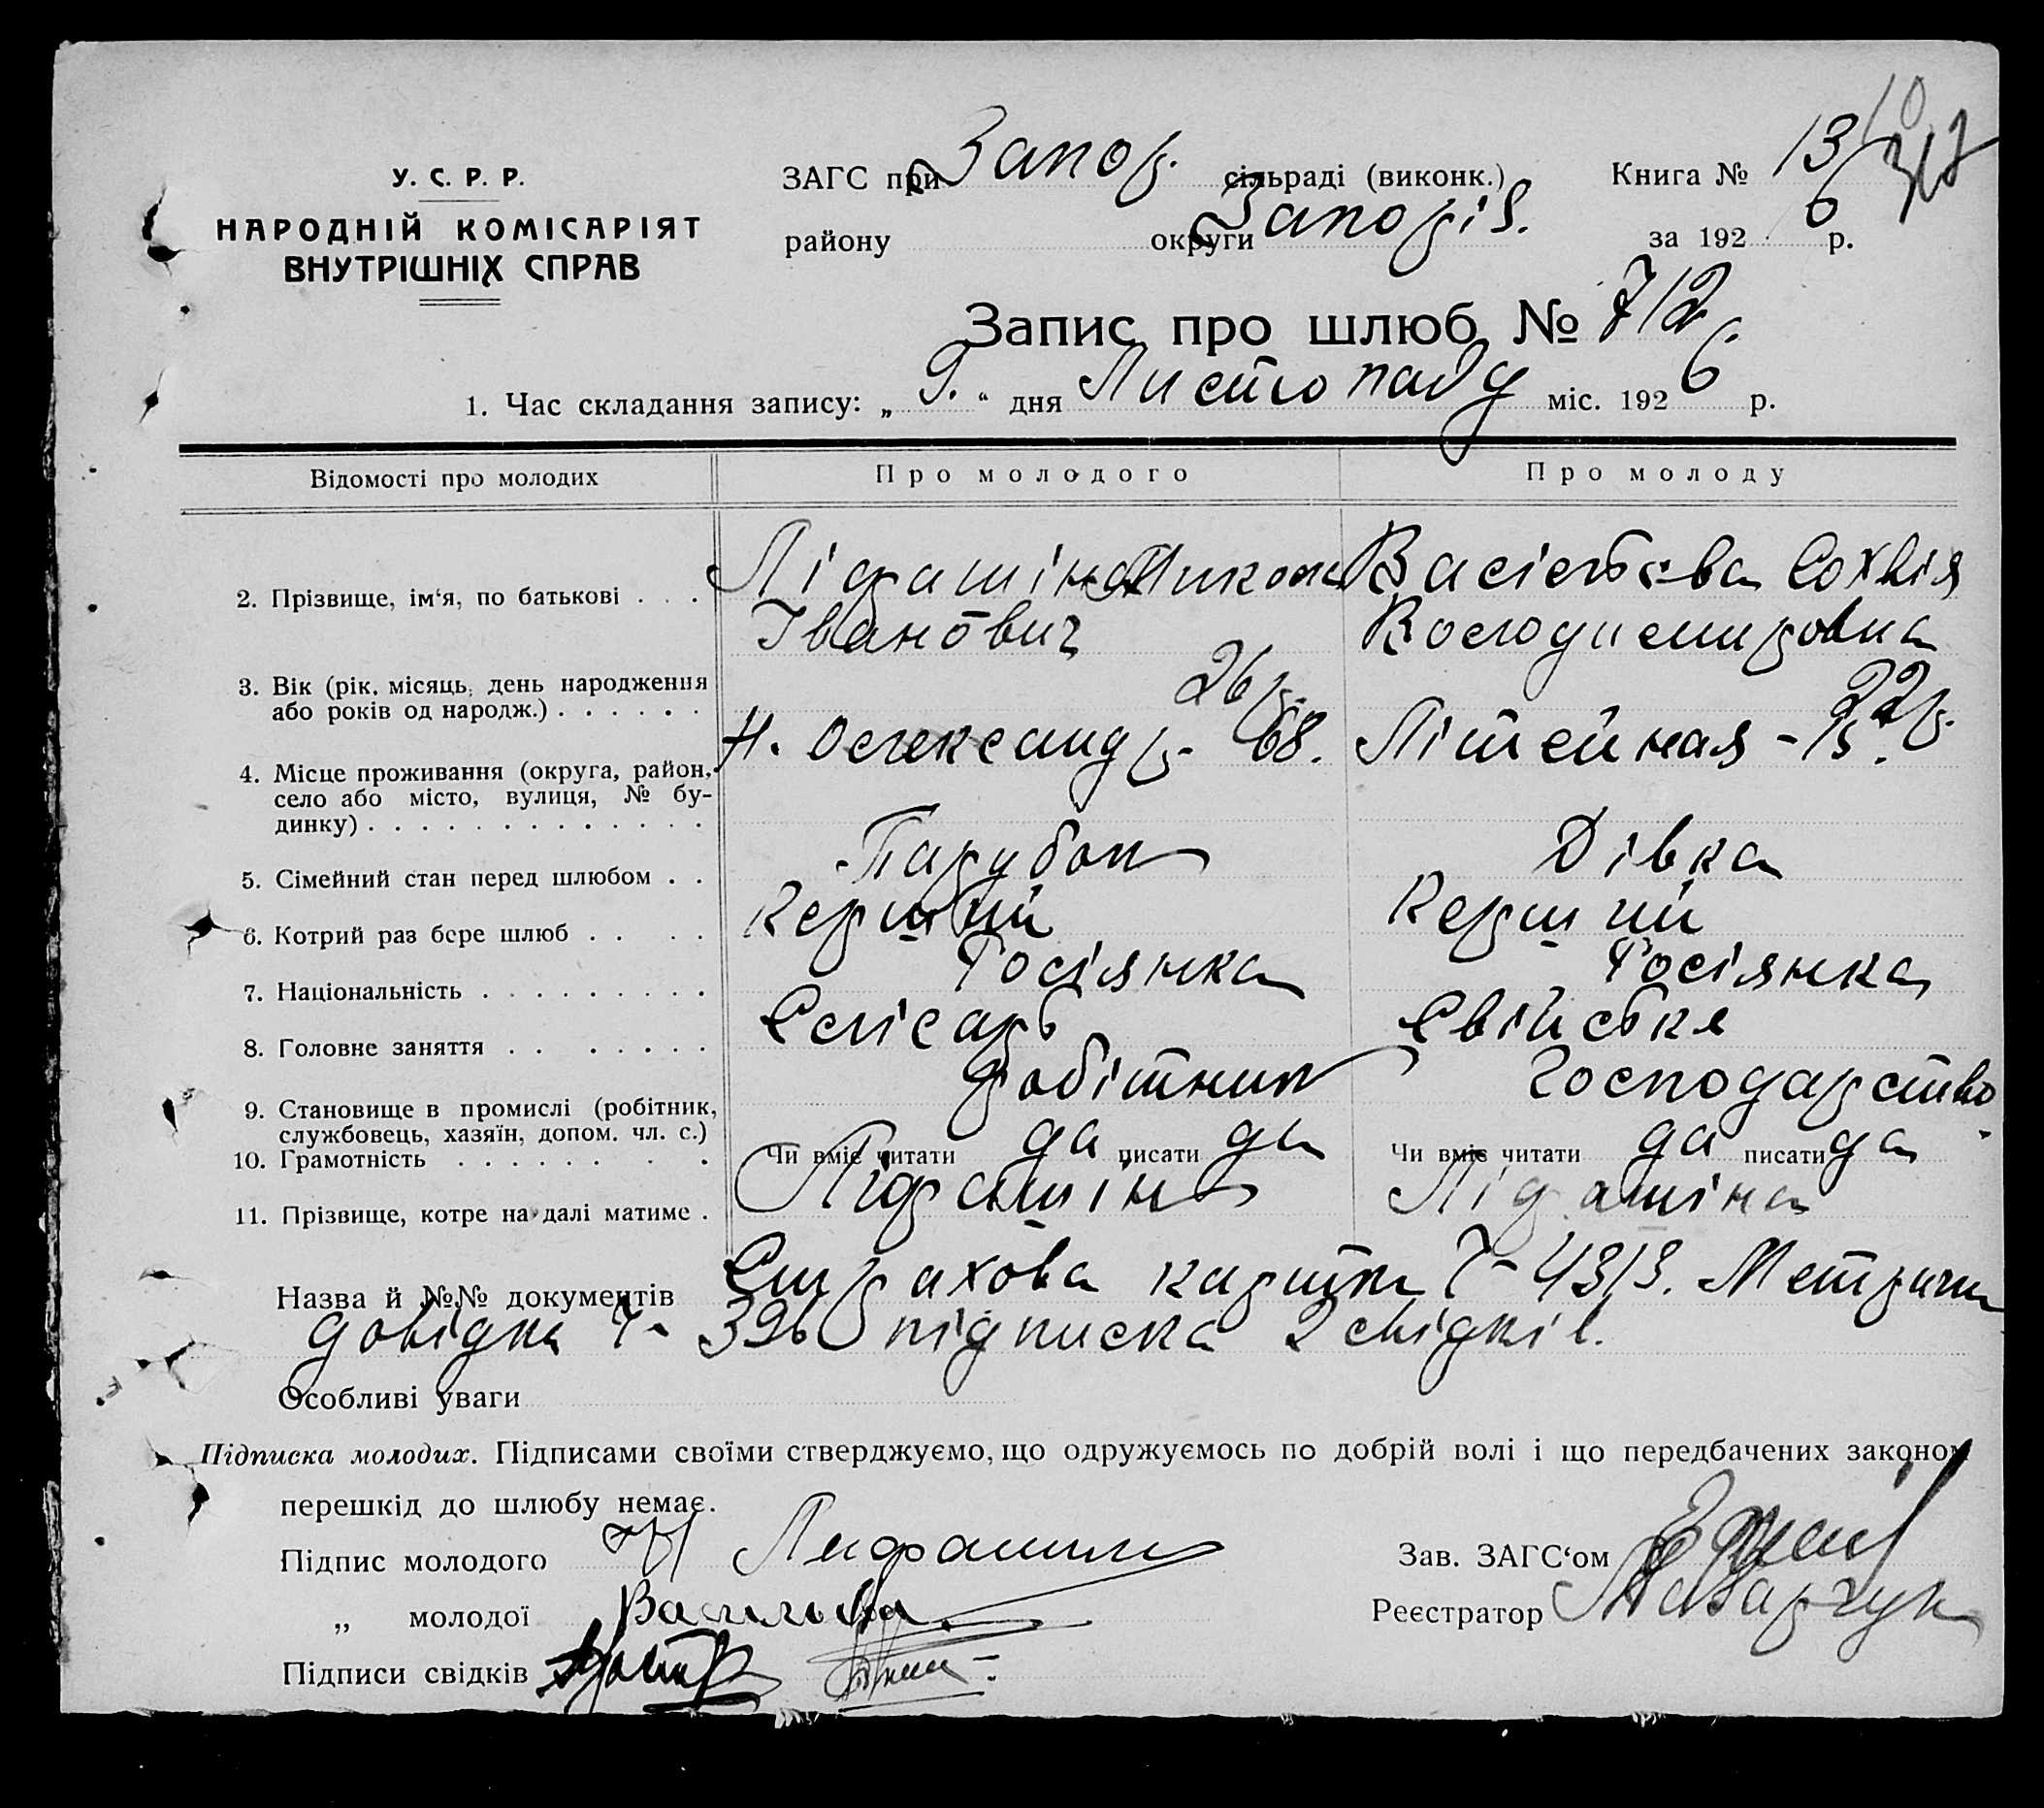 У. С. Р. Р.
НАРОДНІЙ КОМІСАРІЯТ
ВНУТРІШНІХ СПРАВ
ЗАГС при Запор. сільраді (виконк.) Книга № 13
району округи Запоріз. за 1926 р.
Запис про шлюб № 712
1. Час складання запису: „ 9. “ дня Листопаду міс. 1926 р.
Відомості про молодих Про молодого Про молоду
2. Прізвище, ім‘я, по батькові . . . Микола Васільєва Сохвія
Іванович Володимировна
3. Вік (рік, місяць, день народження
або років од народж.) . . . . . . 26 р. 22 р.
4. Місце проживання (округа, район, Н. Олександр. 68. Літейная - 15.
село або місто, вулиця, № бу-
динку) . . . . . . . . . . . . .
5. Сімейний стан перед шлюбом . . Парубок Дівка
6. Котрий раз бере шлюб . . . . Перший Перший
7. Національність . . . . . . . . . Росіянка Росіянка
8. Головне заняття . . . . . . . . Слісарь Свійське
робітник господарство
9. Становище в промислі (робітник,
службовець, хазяїн, допом. чл. с.)
10. Грамотність . . . . . . . . Чи вміє читати да писати да Чи вміє читати да писати да
11. Прізвище, котре на далі матиме .
Назва й №№ документів Страхова картка Ч- 4313. Метрична
довідка Ч- 396 підписка 2 свідків.
Особливі уваги
Підписка молодих. Підписами своїми стверджуємо, що одружуємось по добрій волі і що передбачених законом
перешкід до шлюбу немає.
Підпис молодого Зав. ЗАГС‘ом
„ молодої Васильева Реєстратор Назарчук
Підписи свідків